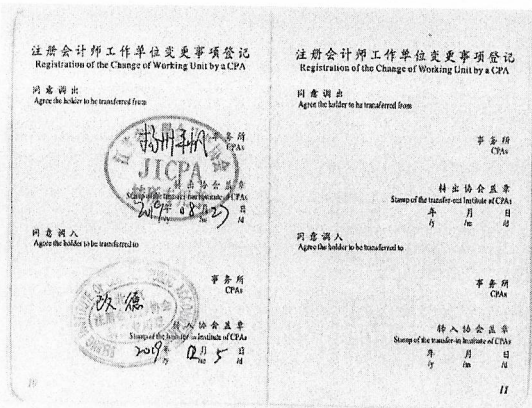 注册会计师工作单位变更事项登记
Registration of the Change of Working Unit by a CPA
同意调出
Agree the holder to be transferred from
事务所
CPAs
JICPA
转出协会盖章
Stamp of the transfer-out Institute of CPAs
2019年 08月 27日
/y /m /d
同意调入
Agree the holder to be transferred to
事务所
CPAs
转入协会盖章
Stamp of the transfer-in Institute of CPAs
2019年 12月 5日
/y /m /d
10
注册会计师工作单位变更事项登记
Registration of the Change of Working Unit by a CPA
同意调出
Agree the holder to be transferred from
事务所
CPAs
转出协会盖章
Stamp of the transfer-out Institute of CPAs
年 月 日
/y /m /d
同意调入
Agree the holder to be transferred to
事务所
CPAs
转入协会盖章
Stamp of the transfer-in Institute of CPAs
年 月 日
/y /m /d
11